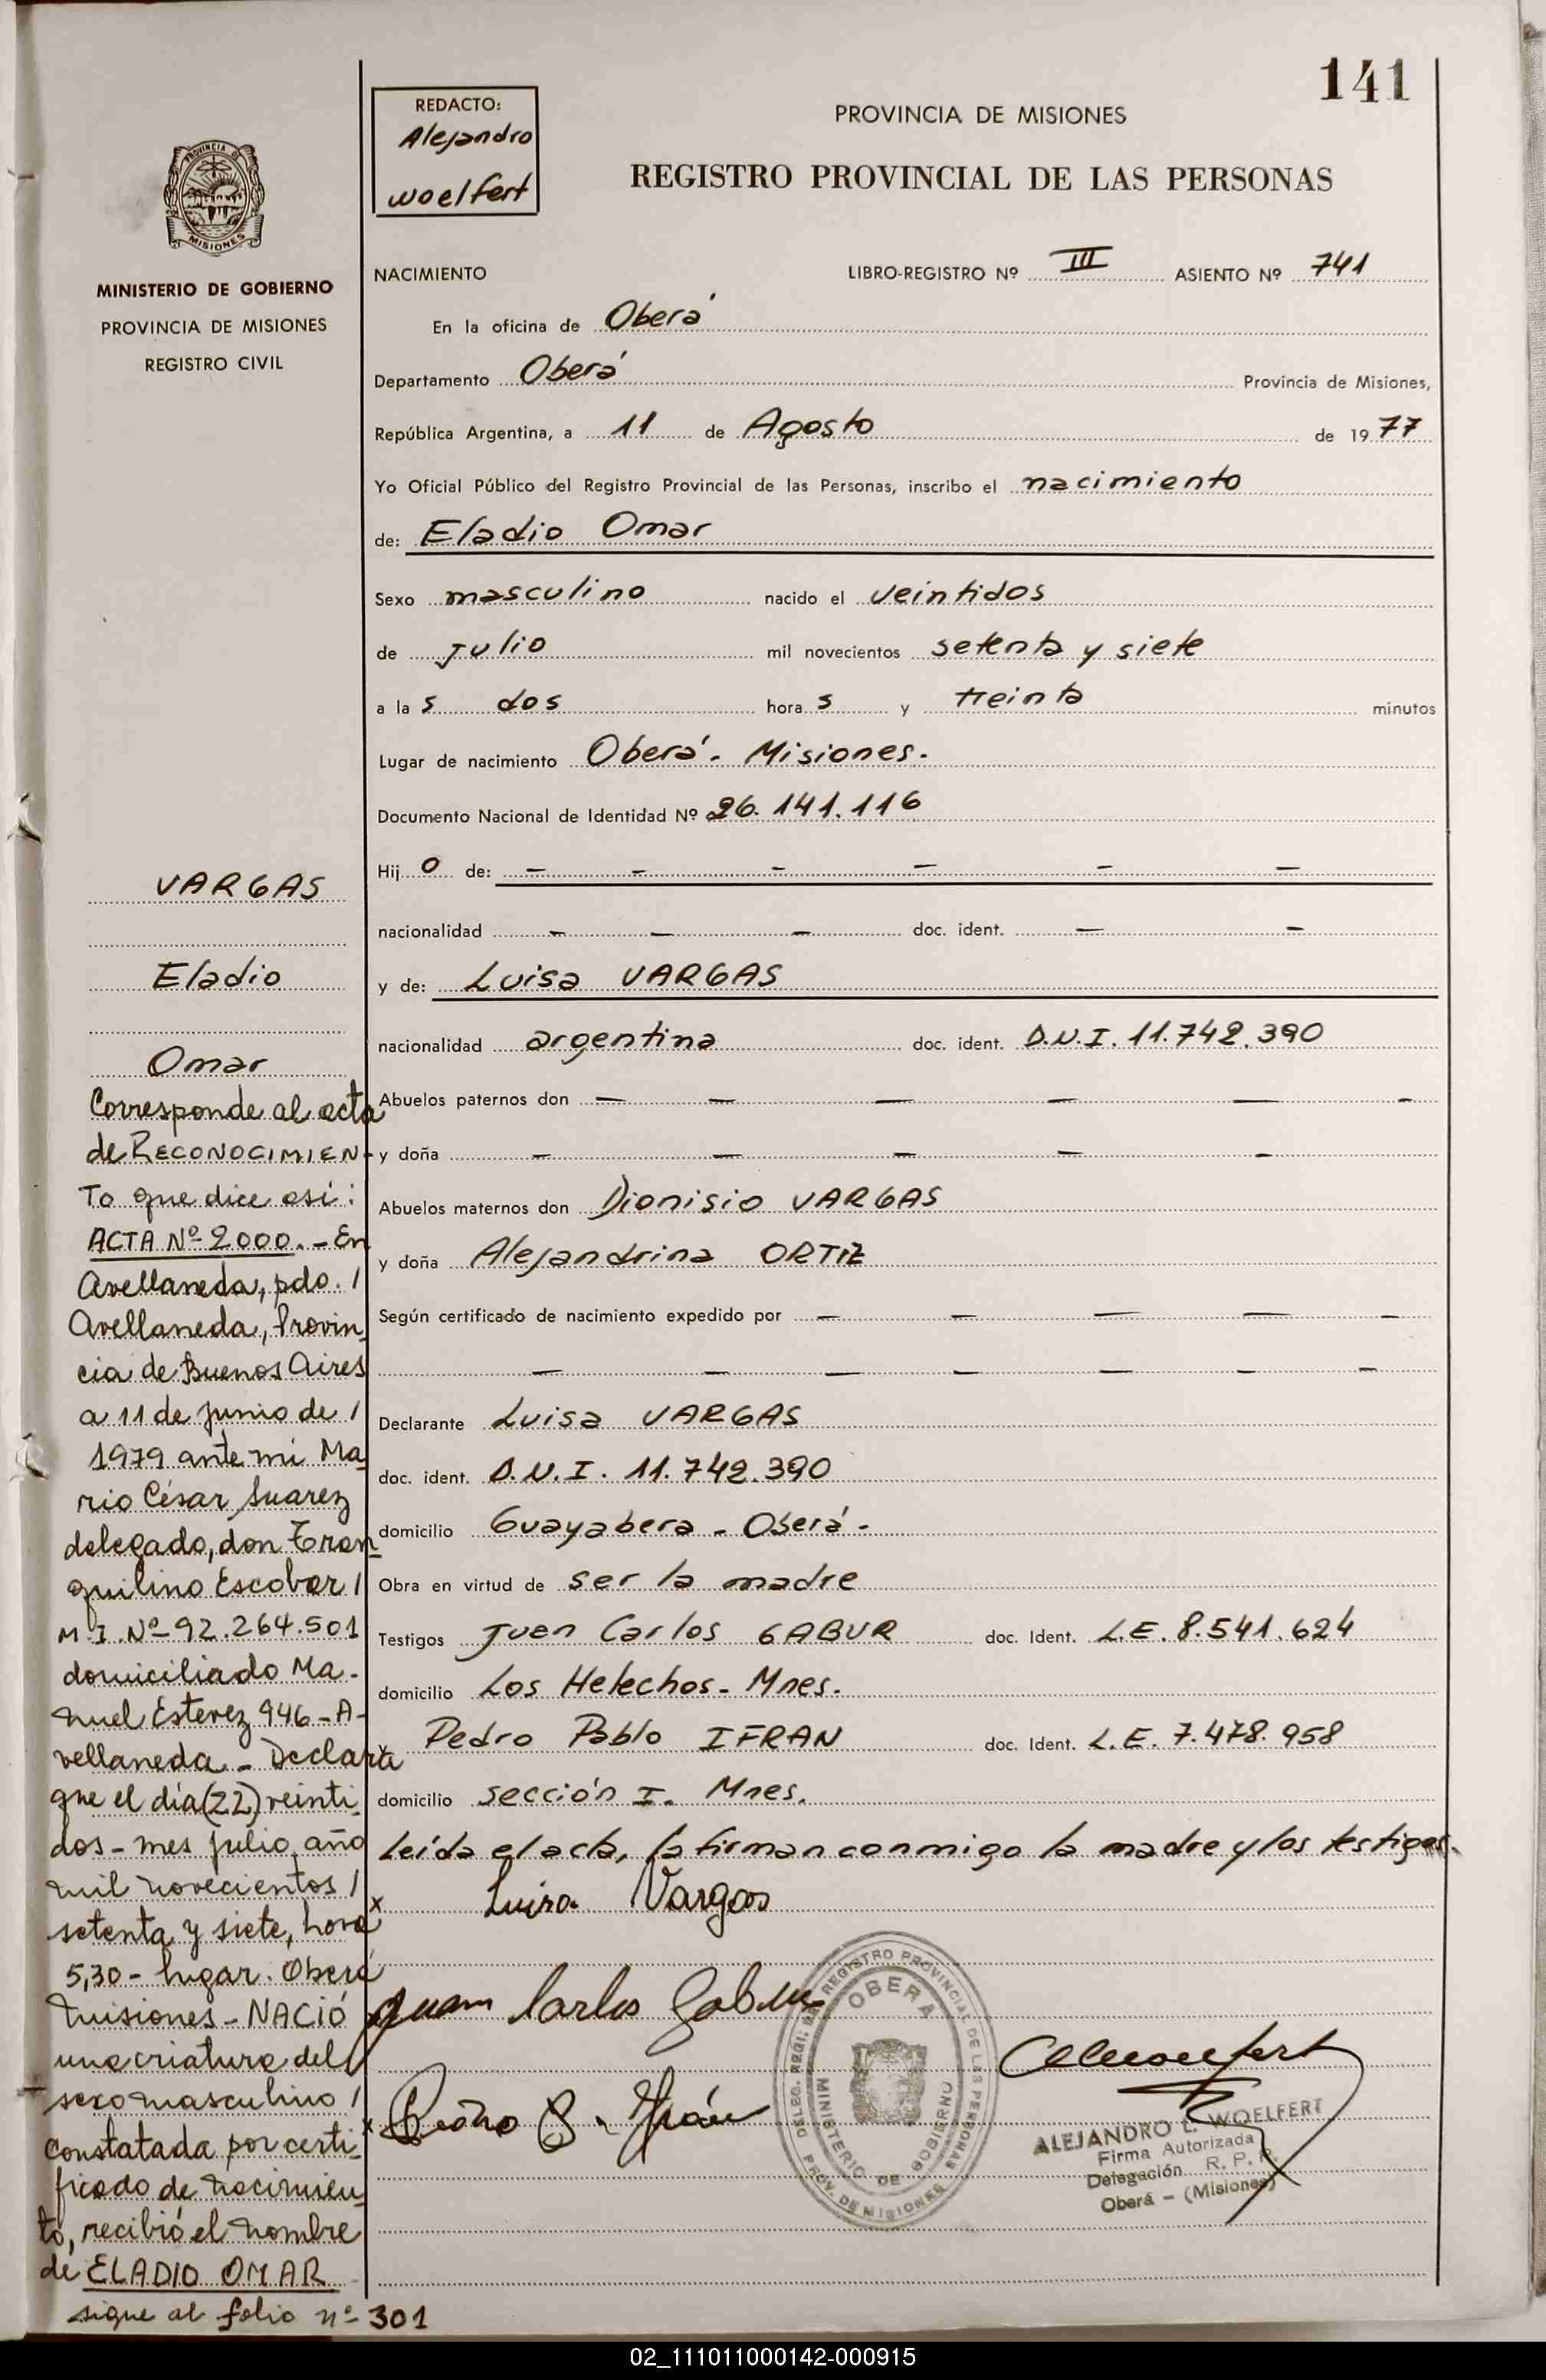 141
REDACTO:
Alejandro
Woelfert
PROVINCIA DE MISIONES
REGISTRO PROVINCIAL DE LAS PERSONAS
PROVINCIA DE
MISIONES
MINISTERIO DE GOBIERNO
PROVINCIA DE MISIONES
REGISTRO CIVIL
NACIMIENTO LIBRO-REGISTRO Nº III ASIENTO Nº 741
En la oficina de Oberá
Departamento Oberá Provincia de Misiones,
República Argentina, a 11 de Agosto de 1977
Yo Oficial Público del Registro Provincial de las Personas, inscribo el nacimiento
de: Eladio Omar
Sexo masculino nacido el veintidos
de Julio mil novecientos setenta y siete
a las dos horas y treinta minutos
Lugar de nacimiento Oberá - Misiones.
Documento Nacional de Identidad Nº 26.141.116
Hijo de: - - - - - -
nacionalidad - - - doc. ident. - -
y de: Luisa VARGAS
nacionalidad argentina doc. ident. D.N.I. 11.742.390
Abuelos paternos don - - - - - -
y doña - - - - -
Abuelos maternos don Dionisio VARGAS
y doña Alejandrina ORTIZ
Según certificado de nacimiento expedido por - - - - -
- - - - - - -
Declarante Luisa VARGAS
doc. ident. D.N.I. 11.742.390
domicilio Guayabera - Oberá -
Obra en virtud de ser la madre
Testigos Juan Carlos GABUR doc. Ident. L.E. 8.541.624
domicilio Los Helechos - Mnes.
y Pedro Pablo IFRAN doc. Ident. L.E. 7.478.958
domicilio sección I. Mnes.
Leída el acta, la firman conmigo la madre y los testigos.
x Luisa Vargas
Juan Carlos Gabur
x Pedro P. Ifrán
REGISTRO PROVINCIAL DE LAS PERSONAS
OBERA
MINISTERIO DE GOBIERNO
PROV. DE MISIONES
ALEJANDRO L. WOELFERT
Firma Autorizada
Delegación R. P. P.
Oberá - (Misiones)
VARGAS
Eladio
Omar
Corresponde al acta
de RECONOCIMIEN-
To que dice así:
ACTA Nº 2000. - En
Avellaneda, pdo. /
Avellaneda, Provin
cia de Buenos Aires
a 11 de junio de /
1979 ante mi Ma
rio César Suarez
delegado, don Tran
quilino Escobar /
M.I. Nº 92.264.501
domiciliado Ma-
nuel Estevez 946 - A-
vellaneda - Declara
que el día (22) veinti
dos - mes julio año
mil novecientos /
setenta y siete, hora
5,30 - lugar. Oberá
Misiones - NACIÓ
una criatura del
sexo masculino /
constatada por certi
ficado de nacimien
to, recibió el nombre
de ELADIO OMAR
sigue al folio nº 301
02_111011000142-000915